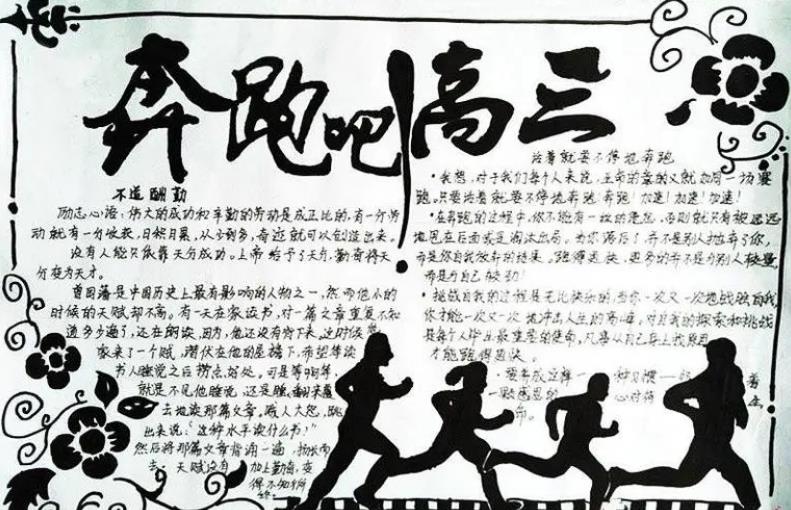 奔跑吧高三
不道酬勤
励志心语：伟大的成功和辛勤的劳动是成正比的，有一分劳
动就有一分收获，日积月累，从少到多，奇迹就可以创造出来。
没有人能只依靠天分成功。上帝给予了天分，勤奋将天
分变为天才。
曾国藩是中国历史上最有影响的人物之一，然而他小的
时候的天赋却不高。有一天在家读书，对一篇文章重复不知
道多少遍了，还在朗读，因为，他还没有背下来。这时候他
家来了一个贼，潜伏在他的屋檐下，希望等读
书人睡觉之后捞点好处。可是等啊等，
就是不见他睡觉，还是
去地读那篇文章。贼人大怒，跳
出来说：“这种水平读什么书！”
然后将那篇文章背诵一遍，扬长而
去。天赋没有 加上勤奋，变
得不知所
终。
活着就要不停地奔跑
·我想，对于我们每个人来说，生命的意义就如同一场赛
跑。只要活着就要不停地奔跑！奔跑！加速！加速！加速！
·在奔跑的过程中，你不能有一丝的 ，否则就只有被远远
地甩在后面或是淘汰出局。 你落后了，并不是别人抛弃了你，
而是你自我放弃的结果。跑得更快，更多的并不是与别人较量，
而是与自己较劲！
·挑战自我的过程是无比快乐的，当你一次又一次地战胜自我，
你才能一次又一次地冲击人生的高峰。对自我的探索和挑战
是每个人毕生最重要的使命，凡事从自己身上找原因
才能跑得更快。
·要养成这样一 种习惯
一颗感恩的 心对待
命。